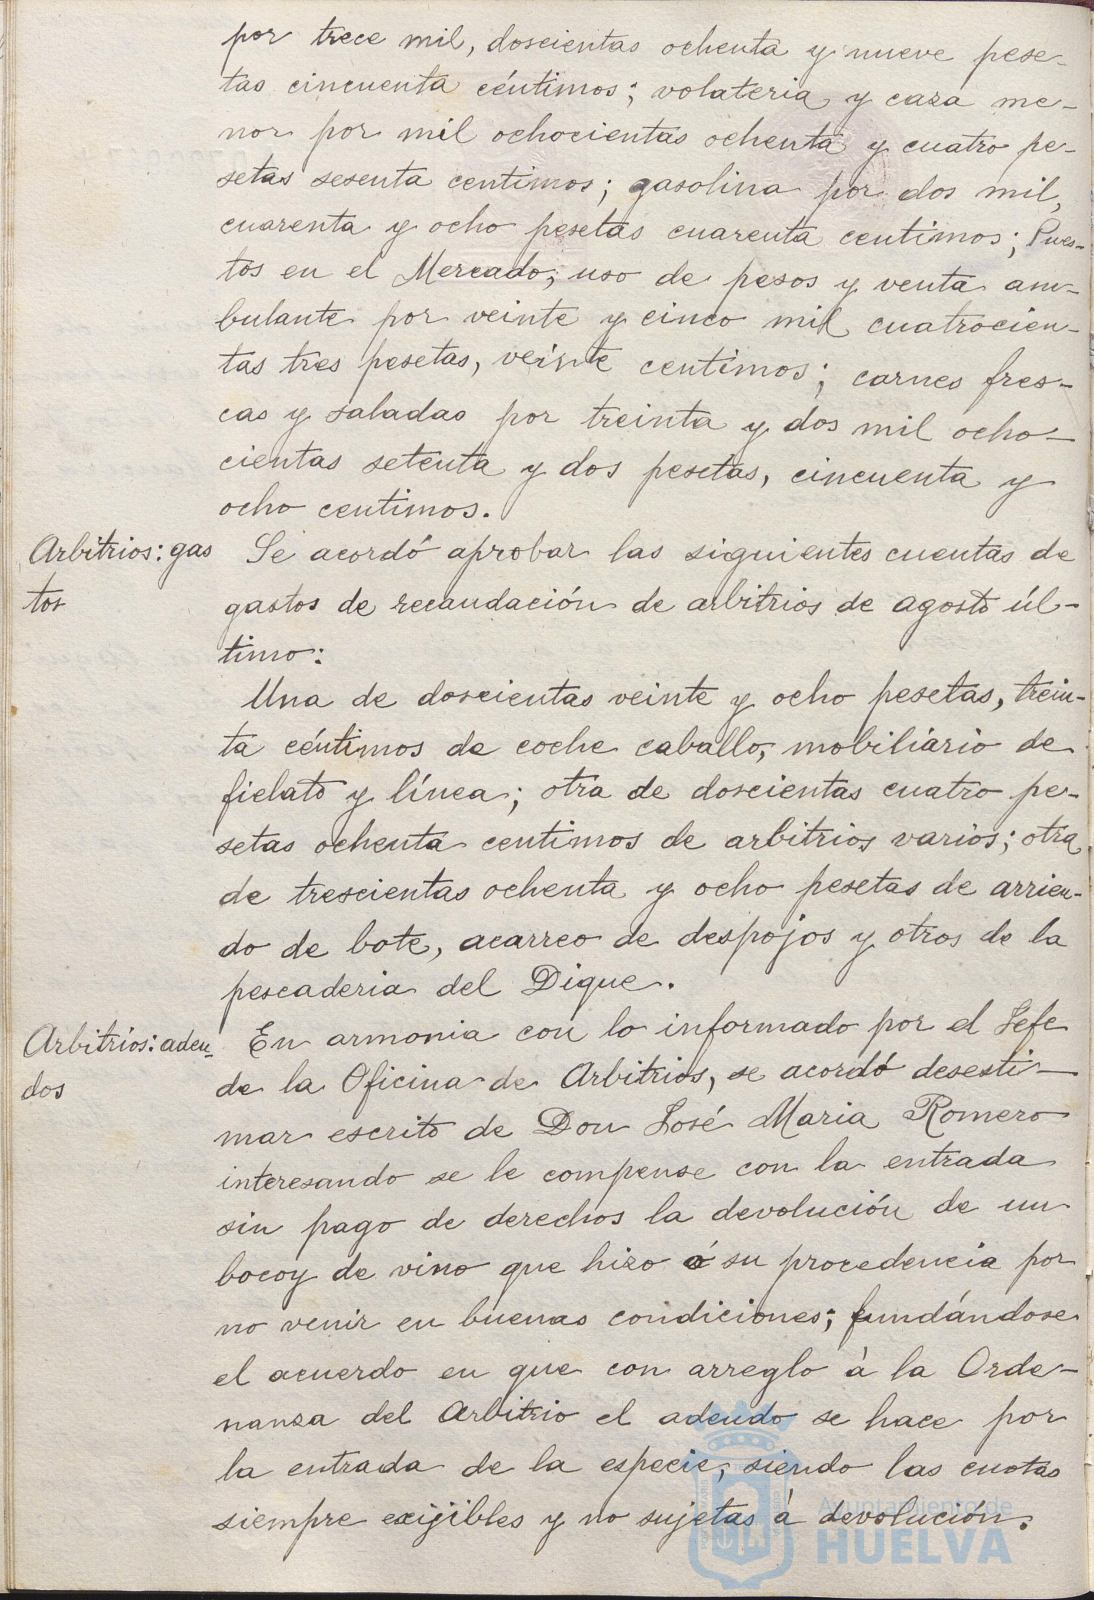 por trece mil, doscientas ochenta y nueve pese-
tas cincuenta céntimos; volateria y caza me-
nor por mil ochocientas ochenta y cuatro pe-
setas sesenta centimos; gasolina por dos mil,
cuarenta y ocho pesetas cuarenta centimos; Pues-
tos en el Mercado, uso de pesos y venta am-
bulante por veinte y cinco mil cuatrocien-
tas tres pesetas, veinte centimos; carnes fres-
cas y saladas por treinta y dos mil ocho-
cientas setenta y dos pesetas, cincuenta y
ocho centimos.
Arbitrios: gas
tos
Se acordó aprobar las siguientes cuentas de
gastos de recaudación de arbitrios de agosto úl-
timo:
Una de doscientas veinte y ocho pesetas, trein-
ta céntimos de coche caballo, mobiliario de
fielato y línea; otra de doscientas cuatro pe-
setas ochenta centimos de arbitrios varios; otra
de trescientas ochenta y ocho pesetas de arrien-
do de bote, acarreo de despojos y otros de la
pescaderia del Dique.
Arbitrios: adeu-
dos
En armonia con lo informado por el Jefe
de la Oficina de Arbitrios, se acordó desesti-
mar escrito de Don José Maria Romero
interesando se le compense con la entrada
sin pago de derechos la devolución de un
bocoy de vino que hizo á su procedencia por
no venir en buenas condiciones; fundándose
el acuerdo en que con arreglo à la Orde-
nanza del Arbitrio el adeudo se hace por
la entrada de la especie, siendo las cuotas
siempre exijibles y no sujetas á devolución.
Ayuntamiento de
HUELVA